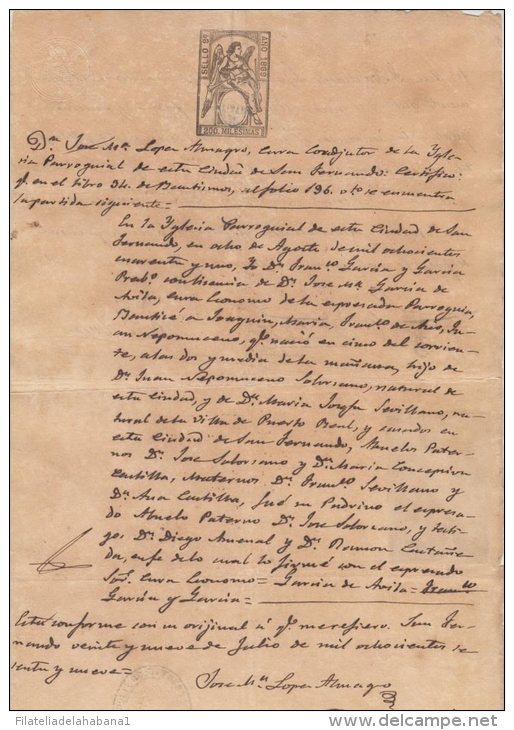 SELLO 9º AÑO 1869
200 MILESIMAS
Dn. Jose Mª Lopez Almagro, Cura Coadjutor de la Ygle-
sia Parroquial de esta Ciudad de San Fernando: Certifico:
q. en el libro 34 de Bautismos, al folio 196 vto se encuentra
la partida siguiente =
En la Yglesia Parroquial de esta Ciudad de San
Fernando, en ocho de Agosto de mil ochocientos
cuarenta y nueve, Yo Dn. Franco. Garcia y Garcia
Presbo. con licencia de Dn. Jose Mª Garcia de
Avila, Cura Economo de la expresada Parroquia,
Bauticé a Joaquin, Maria, Franco. de Asis, Ju-
an Nepomuceno, q. nació en cinco del corrien-
te, a las dos y media de la mañana, hijo de
Dn. Juan Nepomuceno Solorzano, natural de
esta Ciudad, y de Da. Maria Josefa Sevillano, na-
tural de la Villa de Puerto Real, y casados en
esta Ciudad de San Fernando, Abuelos Pater-
nos Dn. Jose Solorzano y Da. Maria Concepcion
Castilla, Maternos Dn. Franco. Sevillano y
Da. Ana Castilla, fué su Padrino el expresa-
do Abuelo Paterno Dn. Jose Solorzano, y testi-
gos Dn. Diego Arsenal y Dn. Ramon Castañe-
da, en fe de lo cual lo firmé con el expresado
Sor. Cura Economo = Garcia de Avila = Franco.
Garcia y Garcia =
Esta conforme con su orijinal á q. me refiero. San Fer-
nando veinte y nueve de Julio de mil ochocientos se-
senta y nueve =
Jose Mª Lopez Almagro
Filateliadelahabana1
www.delcampe.net